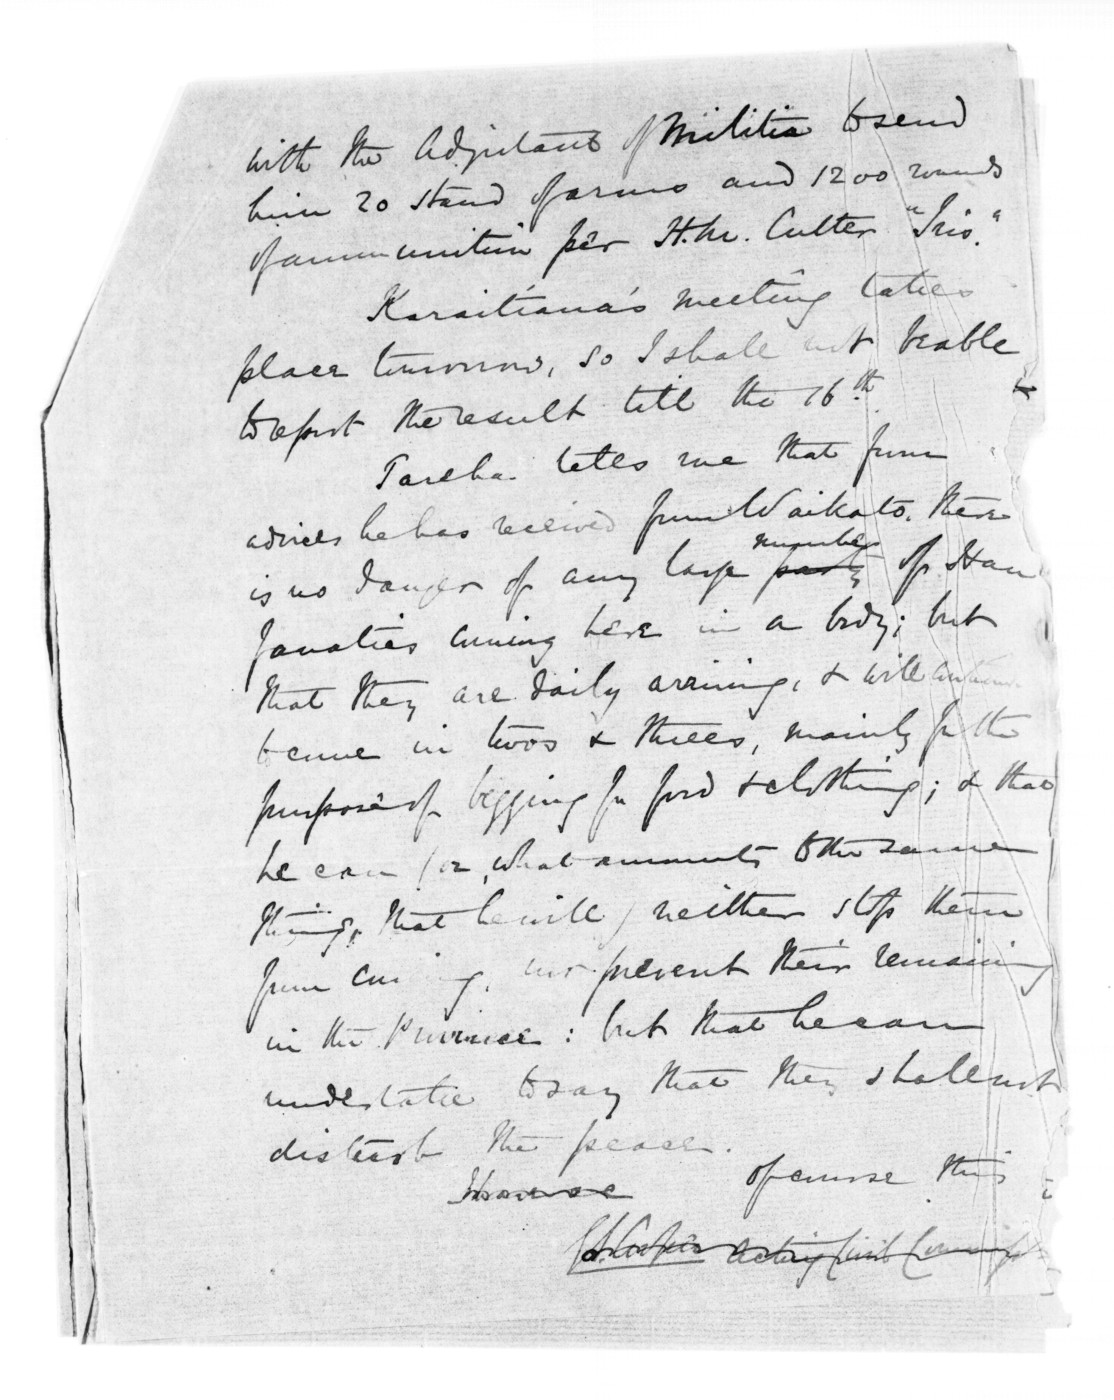 with the Adjutant of Militia to send
him 20 stand of arms and 1200 rounds
of ammunition per H.M. Cutter "Iris."
Karaitiana's meeting takes
place tomorrow, so I shall not be able
to report the result till the 16th.
Tareha tells me that from
advices he has received from Waikato, there
is no danger of any large party number of Hau
fanatics coming here in a body; but
that they are daily arriving, & will continue
to come in twos & threes, mainly for the
purpose of begging for food & clothing; & that
he can (or, what amounts to the same
thing, that he will) neither stop them
from coming, nor prevent their remaining
in the Province: but that he can
undertake to say that they shall not
disturb the peace.
I have
of course this
GS Cooper Acting Civil Commissr